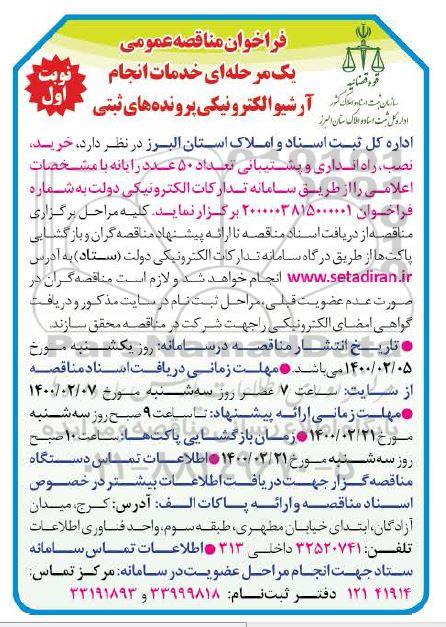 فراخوان مناقصه عمومی
یک مرحله‌ای خدمات انجام
آرشیو الکترونیکی پرونده‌های ثبتی
نوبت
اول
قوه قضائیه
سازمان ثبت اسناد و املاک کشور
اداره کل ثبت اسناد و املاک استان البرز
اداره کل ثبت اسناد و املاک استان البرز در نظر دارد، خرید،
نصب، راه‌اندازی و پشتیبانی تعداد ۵۰ عدد رایانه با مشخصات
اعلامی را از طریق سامانه تدارکات الکترونیکی دولت به شماره
فراخوان ۲۰۰۰۰۰۳۸۱۵۰۰۰۰۰۱ برگزار نماید. کلیه مراحل برگزاری
مناقصه از دریافت اسناد مناقصه تا ارائه پیشنهاد مناقصه‌گران و بازگشایی
پاکت‌ها از طریق درگاه سامانه تدارکات الکترونیکی دولت (ستاد) به آدرس
www.setadiran.ir انجام خواهد شد و لازم است مناقصه‌گران در
صورت عدم عضویت قبلی، مراحل ثبت نام در سایت مذکور و دریافت
گواهی امضای الکترونیکی را جهت شرکت در مناقصه محقق سازند.
● تاریخ انتشار مناقصه در سامانه: روز یکشنبه مورخ
۱۴۰۰/۰۲/۰۵ می‌باشد. ● مهلت زمانی دریافت اسناد مناقصه
از سایت: ساعت ۷ عصر روز سه‌شنبه مورخ ۱۴۰۰/۰۲/۰۷
● مهلت زمانی ارائه پیشنهاد: تا ساعت ۹ صبح روز سه‌شنبه
مورخ ۱۴۰۰/۰۲/۲۱ ● زمان بازگشایی پاکت‌ها: ساعت ۱۰ صبح
روز سه‌شنبه مورخ ۱۴۰۰/۰۲/۲۱ ● اطلاعات تماس دستگاه
مناقصه گزار جهت دریافت اطلاعات بیشتر در خصوص
اسناد مناقصه و ارائه پاکات الف: آدرس: کرج، میدان
آزادگان، ابتدای خیابان مطهری، طبقه سوم، واحد فناوری اطلاعات
تلفن: ۳۲۵۲۰۷۴۱ داخلی ۳۱۳ ● اطلاعات تماس سامانه
ستاد جهت انجام مراحل عضویت در سامانه: مرکز تماس:
۴۱۹۱۴ ۱۲۱ دفتر ثبت‌نام: ۳۳۹۹۹۸۱۸ و ۳۳۱۹۱۸۹۳